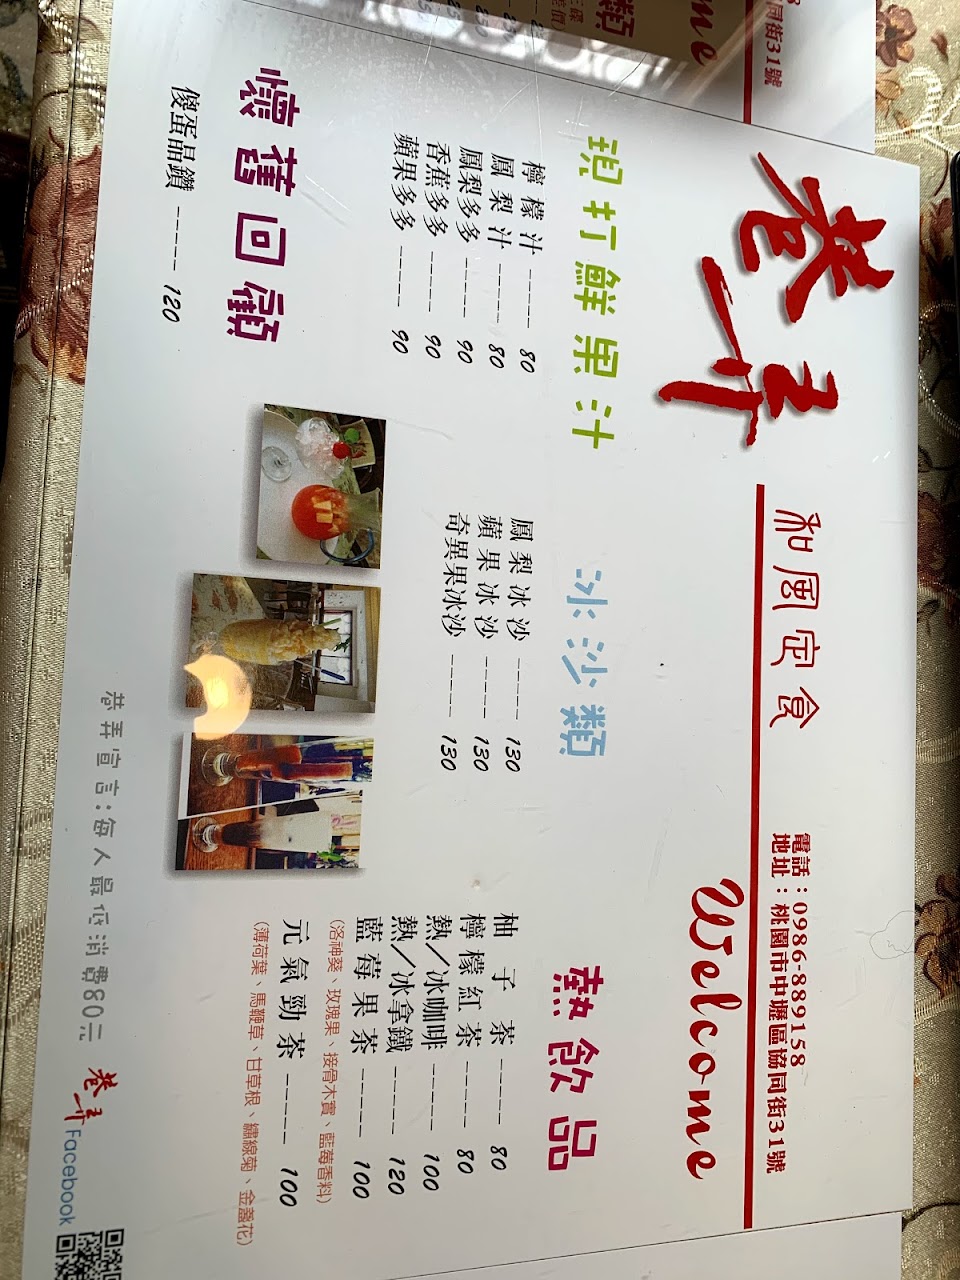 巷弄
和風定食
電話：0986-889158
地址：桃園市中壢區協同街31號
Welcome
現打鮮果汁
檸檬汁 ----- 80
鳳梨汁 ----- 80
鳳梨多多 ----- 90
香蕉多多 ----- 90
蘋果多多 ----- 90
冰沙類
鳳梨冰沙 ----- 130
蘋果冰沙 ----- 130
奇異果冰沙 ----- 130
熱飲品
柚子茶 ----- 80
檸檬紅茶 ----- 80
熱／冰咖啡 ----- 100
熱／冰拿鐵 ----- 120
藍莓果茶 ----- 100
(洛神葵、玫瑰果、接骨木賓、藍莓香料)
元氣勁茶 ----- 100
(薄荷葉、馬鞭草、甘草根、繡線菊、金盞花)
懷舊回顧
傻蛋晶鑽 ----- 120
巷弄宣言：每人最低消費80元
巷弄 Facebook
同街31號
me
類